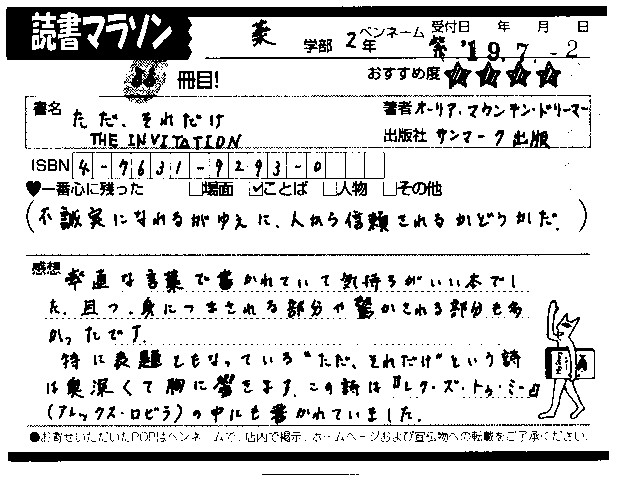 読書マラソン
薬 学部 2年 ペンネーム 受付日 年 月 日
'19.7.-2
冊目! おすすめ度 ★★★★
書名 ただ、それだけ
THE INVITATION
著者 オーリア・マウンテン・ドリーマー
出版社 サンマーク出版
ISBN 4-7631-9293-0
♥一番心に残った □場面 ☑ことば □人物 □その他
(不誠実になれるがゆえに、人から信頼されるかどうかだ。)
感想 率直な言葉で書かれていて気持ちがいい本でし
た。且つ、身につまされる部分や驚かされる部分も多
かったです。
特に表題ともなっている“ただ、それだけ”という詩
は奥深くて胸に響きます。この詩は『レター・ズ・トゥ・ミー』
(アレックス・ロビラ)の中にも書かれていました。
●お寄せいただいたPOPはペンネームで、店内で掲示、ホームページおよび宣伝物への転載をご了承ください。